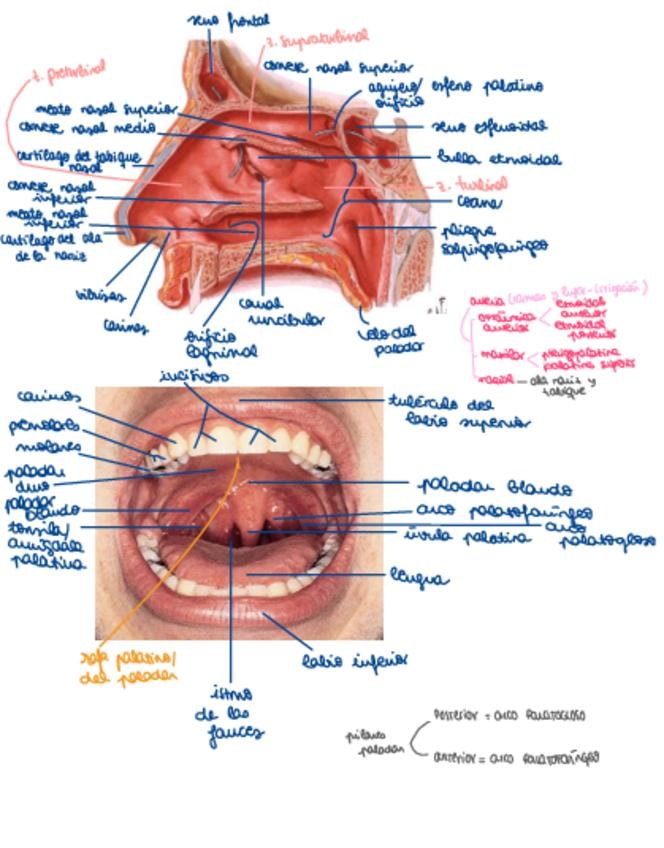 seno frontal
z. supraturbinal
cornete nasal superior
z. preturbinal
agujero/ esfeno palatino
orificio
meato nasal superior
cornete nasal medio
seno esfenoidal
cartílago del tabique
nasal
bulla etmoidal
cornete nasal
inferior
z. turbinal
coana
meato nasal
inferior
cartílago del ala
de la nariz
pliegue
salpingofaríngeo
vibrisas
carinas
canal
uncibular
orificio
lagrimal
velo del
paladar
arteria (ramas y supra-irrigación)
oftálmica
anterior
etmoidal
anterior
etmoidal
posterior
maxilar
pterigopalatina
palatina superior
nasal — ala nariz y
tabique
incisivos
caninos
premolares
molares
tubérculo del
labio superior
paladar
duro
paladar
blando
tonsila/
amígdala
palatina
paladar blando
arco palatofaríngeo
arco
palatogloso
úvula palatina
lengua
rafe palatino/
del paladar
labio inferior
istmo
de las
fauces
pilares
paladar
posterior = arco palatogloso
anterior = arco palatofaríngeo